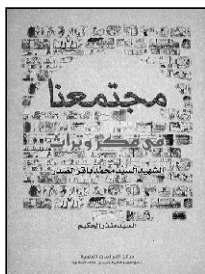 مجتمعنا
في فكر وتراث
الشهيد السيد محمد باقر الصدر
السيد منذر الحكيم
مركز الدراسات العلمية